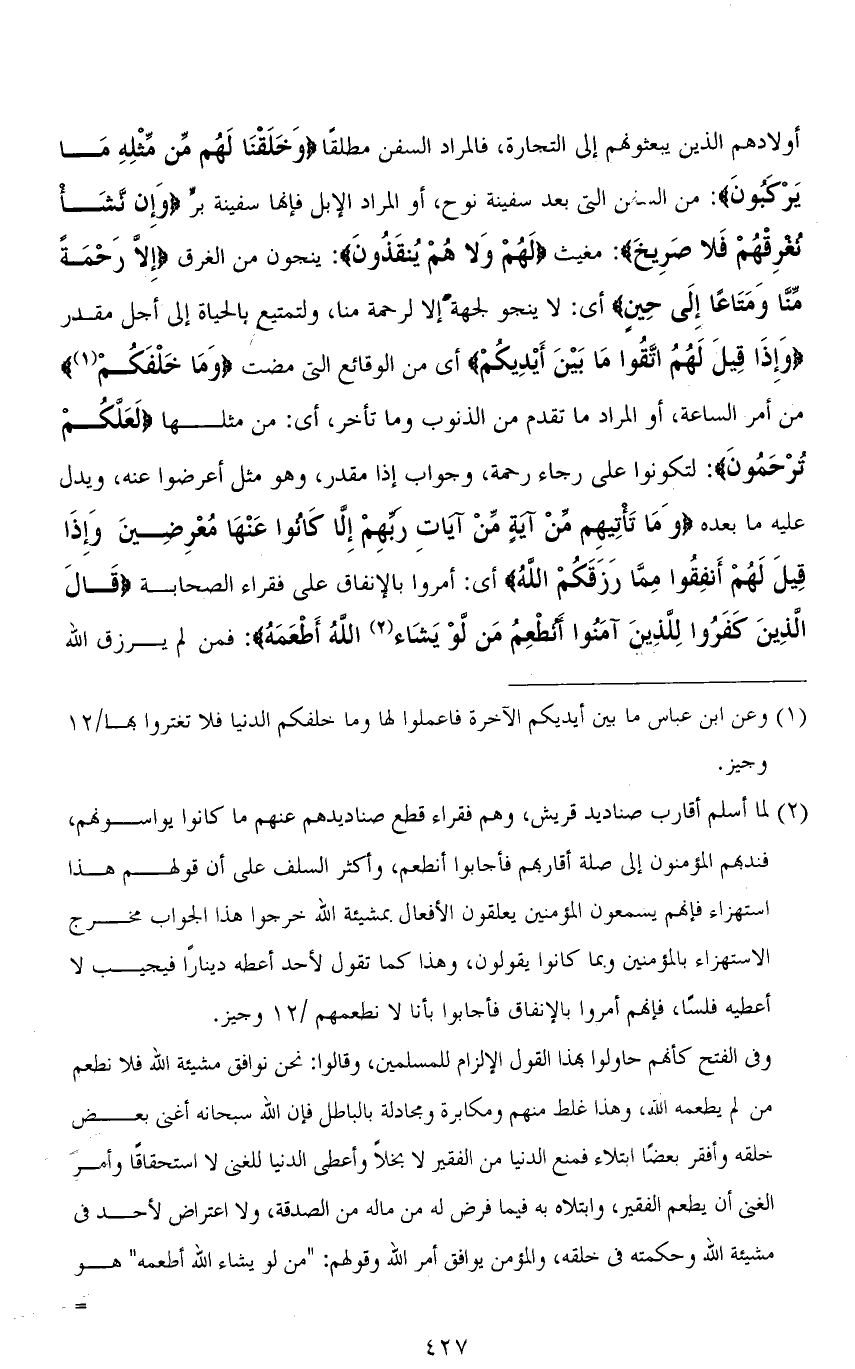 أولادهم الذين يبعثونهم إلى التجارة، فالمراد السفن مطلقًا ﴿وَخَلَقْنَا لَهُم مِّن مِّثْلِهِ مَــا
يَرْكَبُونَ﴾: من السفن التى بعد سفينة نوح، أو المراد الإبل فإنها سفينة برٍّ ﴿وَإِن نَّشَــأْ
نُغْرِقْهُمْ فَلا صَرِيخَ﴾: مغيث ﴿لَهُمْ وَلا هُمْ يُنقَذُونَ﴾: ينجون من الغرق ﴿إِلاَّ رَحْمَةً
مِّنَّا وَمَتَاعًا إِلَى حِينٍ﴾ أى: لا ينجو لجهة إلا لرحمة منا، ولتمتيع بالحياة إلى أجل مقـدر
﴿وَإِذَا قِيلَ لَهُمُ اتَّقُوا مَا بَيْنَ أَيْدِيكُمْ﴾ أى من الوقائع التى مضت ﴿وَمَا خَلْفَكُــمْ(١)﴾
من أمر الساعة، أو المراد ما تقدم من الذنوب وما تأخر، أى: من مثلــــها ﴿لَعَلَّكُــمْ
تُرْحَمُونَ﴾: لتكونوا على رجاء رحمة، وجواب إذا مقدر، وهو مثل أعرضوا عنه، ويدل
عليه ما بعده ﴿وَمَا تَأْتِيهِم مِّنْ آيَةٍ مِّنْ آيَاتِ رَبِّهِمْ إِلَّا كَانُوا عَنْهَا مُعْرِضِــينَ وَإِذَا
قِيلَ لَهُمْ أَنفِقُوا مِمَّا رَزَقَكُمْ اللَّهُ﴾ أى: أمروا بالإنفاق على فقراء الصحابــة ﴿قَــالَ
الَّذِينَ كَفَرُوا لِلَّذِينَ آمَنُوا أَنُطْعِمُ مَن لَّوْ يَشَاء(٢) اللَّهُ أَطْعَمَهُ﴾: فمن لم يــرزق الله
(١) وعن ابن عباس ما بين أيديكم الآخرة فاعملوا لها وما خلفكم الدنيا فلا تغتروا بهـا/١٢
وجيز.
(٢) لما أسلم أقارب صناديد قريش، وهم فقراء قطع صناديدهم عنهم ما كانوا يواســونهم،
فندبهم المؤمنون إلى صلة أقاربهم فأجابوا أنطعم، وأكثر السلف على أن قولهــم هــذا
استهزاء فإنهم يسمعون المؤمنين يعلقون الأفعال بمشيئة الله خرجوا هذا الجواب مخــرج
الاستهزاء بالمؤمنين وبما كانوا يقولون، وهذا كما تقول لأحد أعطه دينارًا فيجيــب لا
أعطيه فلسًا، فإنهم أمروا بالإنفاق فأجابوا بأنا لا نطعمهم /١٢ وجيز.
وفى الفتح كأنهم حاولوا بهذا القول الإلزام للمسلمين، وقالوا: نحن نوافق مشيئة الله فلا نطعم
من لم يطعمه الله، وهذا غلط منهم ومكابرة ومجادلة بالباطل فإن الله سبحانه أغنى بعــض
خلقه وأفقر بعضًا ابتلاء فمنع الدنيا من الفقير لا بخلاً وأعطى الدنيا للغنى لا استحقاقًا وأمــر
الغنى أن يطعم الفقير، وابتلاه به فيما فرض له من ماله من الصدقة، ولا اعتراض لأحــد فى
مشيئة الله وحكمته فى خلقه، والمؤمن يوافق أمر الله وقولهم: "من لو يشاء الله أطعمه" هــو
=
٤٢٧